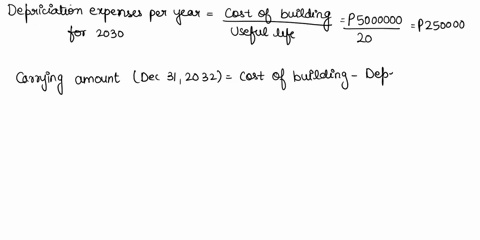 Depriciation expenses per year = Cost of building / Useful life = P5000000 / 20 = P250000
for 2030
Carrying amount (Dec 31, 2032) = Cost of building - Dep